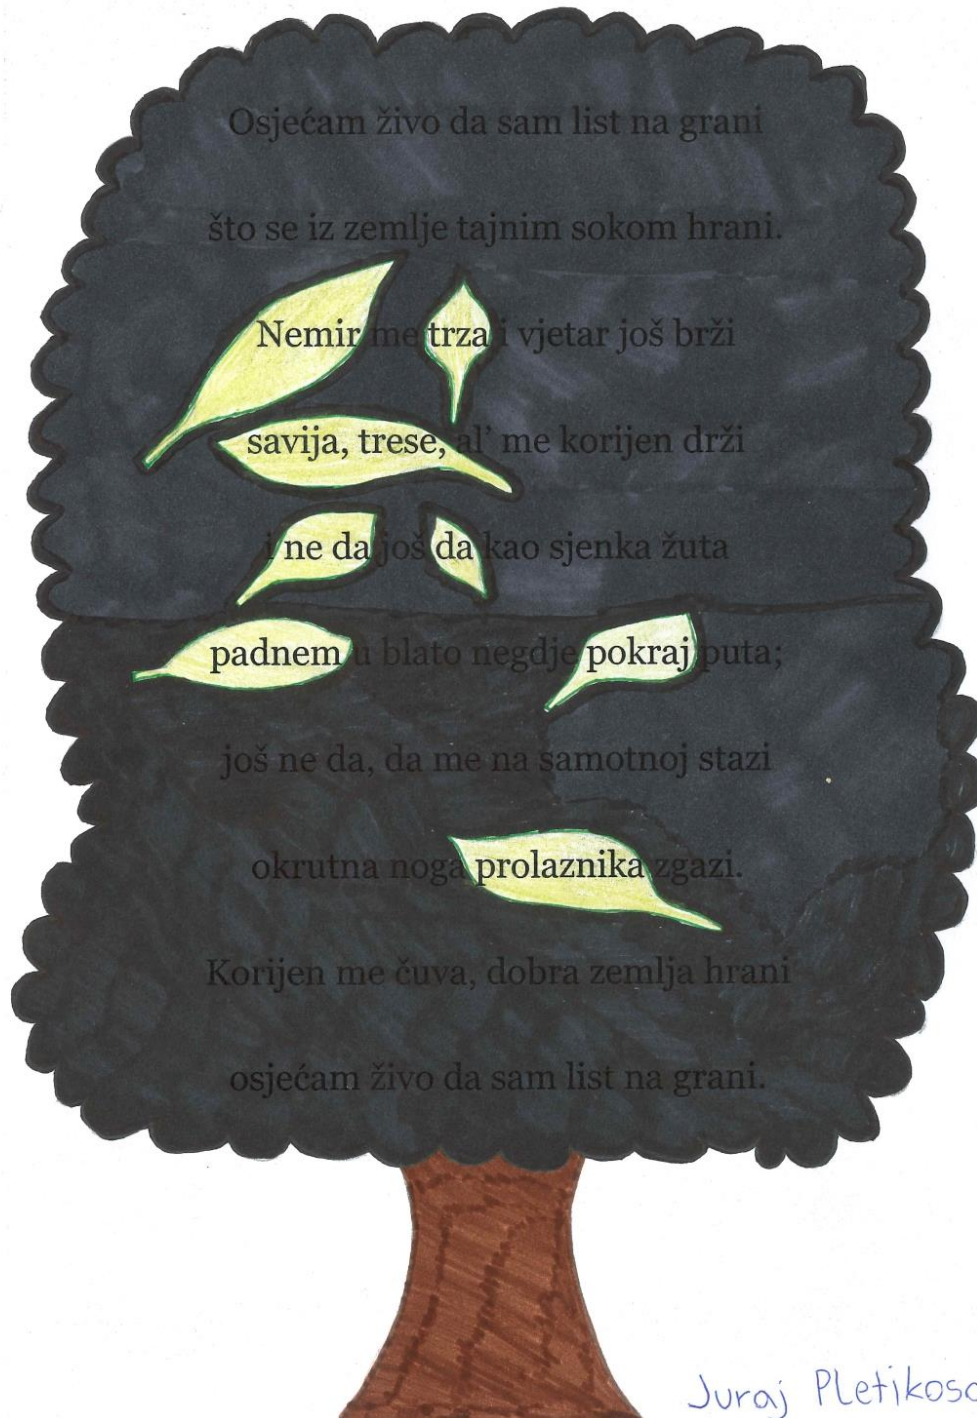 Osjećam živo da sam list na grani
što se iz zemlje tajnim sokom hrani.
Nemir me trza i vjetar još brži
savija, trese, al' me korijen drži
i ne da još da kao sjenka žuta
padnem u blato negdje pokraj puta;
još ne da, da me na samotnoj stazi
okrutna noga prolaznika zgazi.
Korijen me čuva, dobra zemlja hrani
osjećam živo da sam list na grani.
Juraj Pletikosa